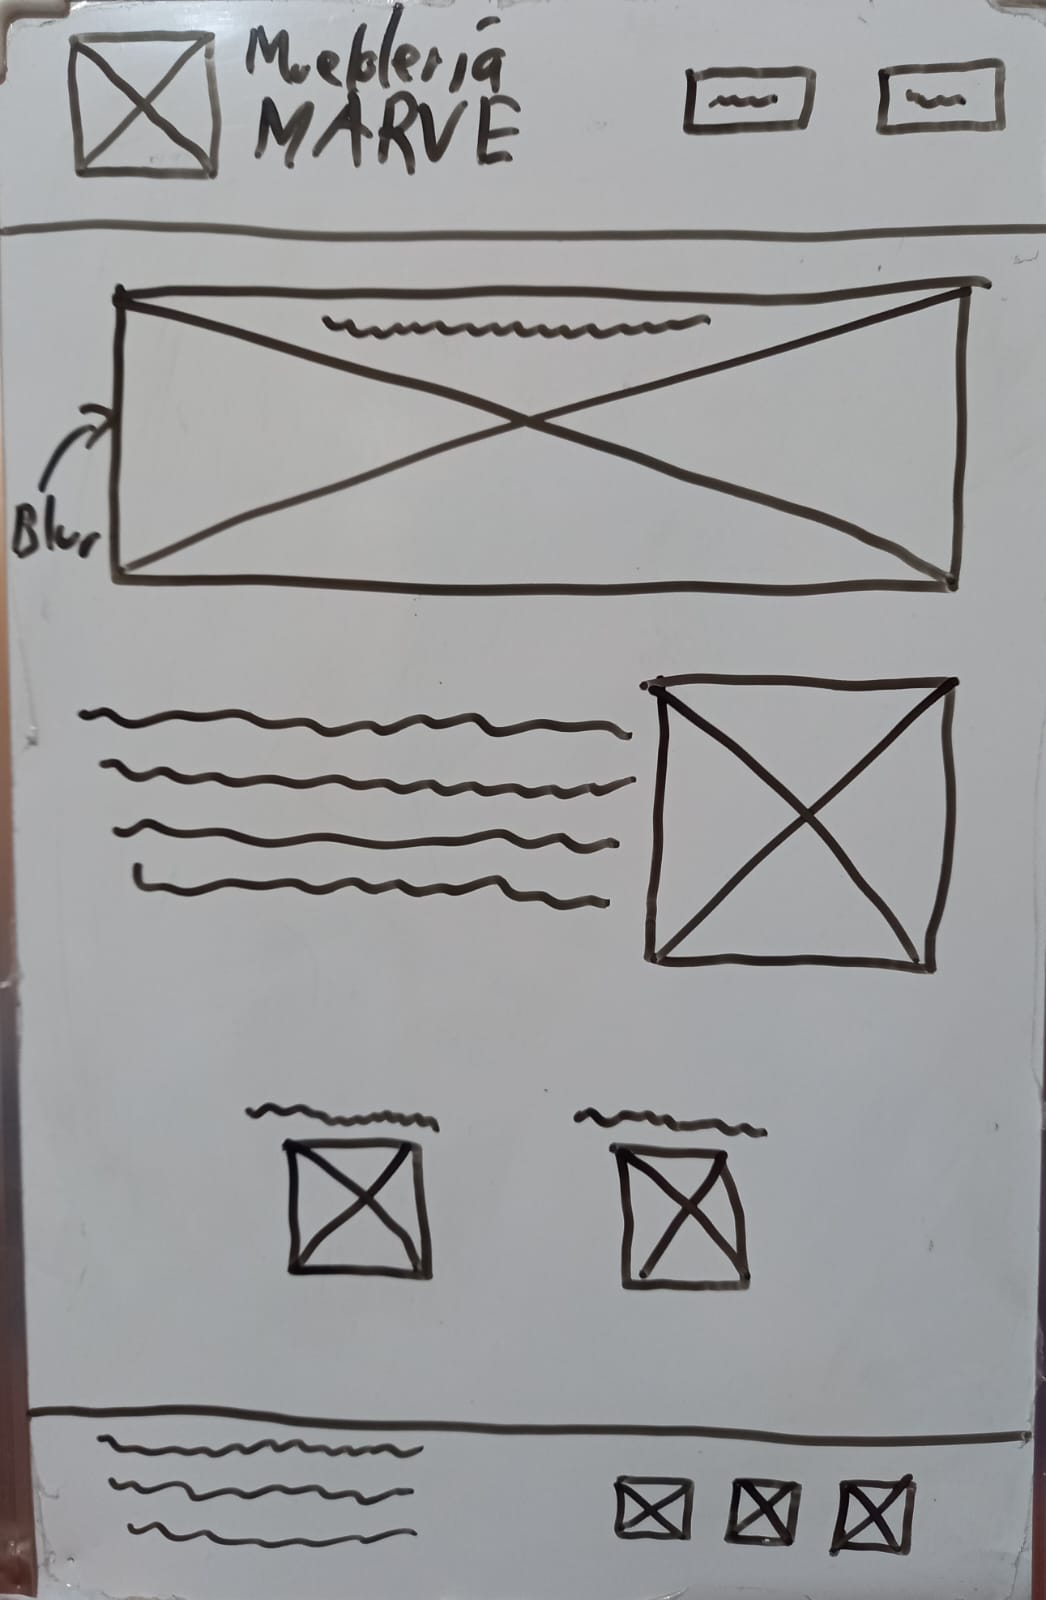 Mueblería
MARVE
Blur